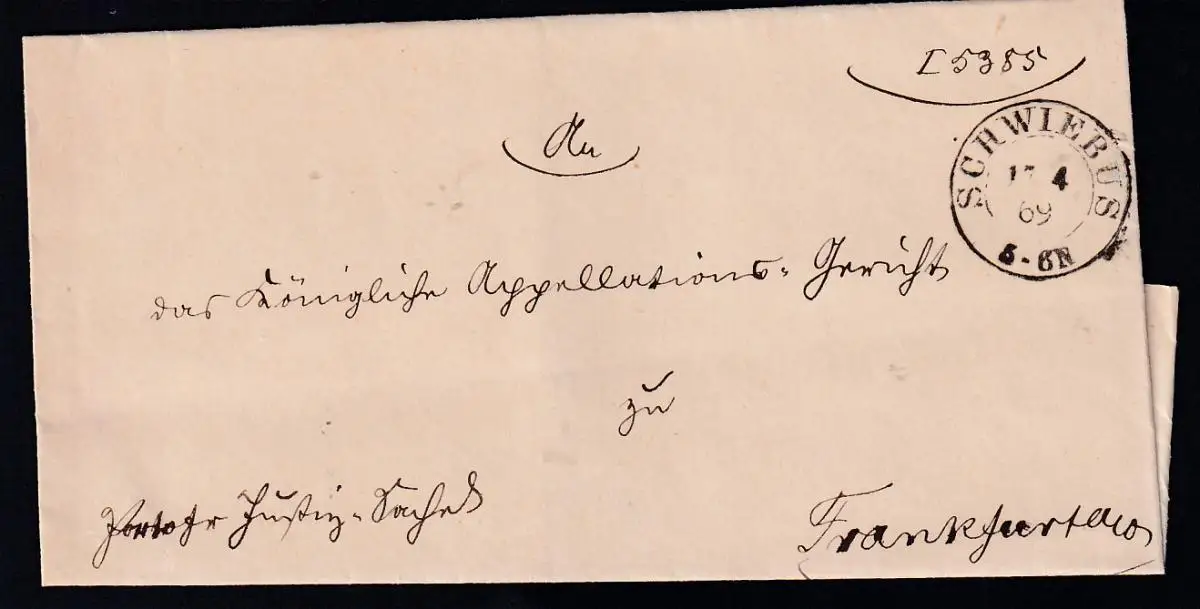 5385
An
SCHWIEBUS
4
69
5-6N
das Königliche Appellations-Gericht
zu
Portofr Justiz-Sache
Frankfurt a/O